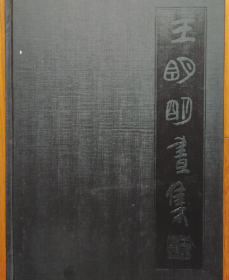 王明明畫集